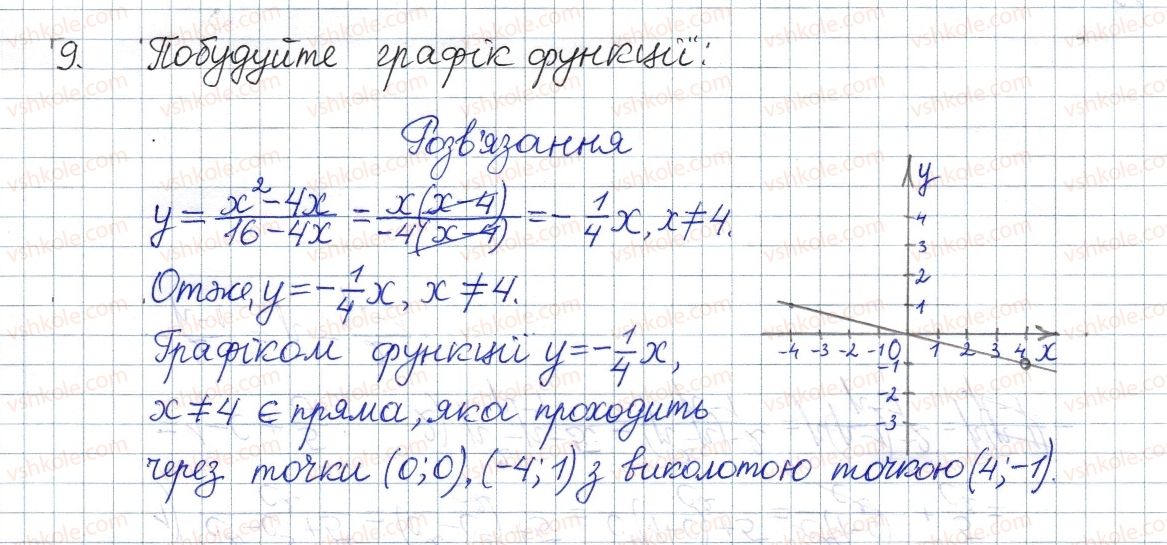 9. Побудуйте графік функції:
Розв'язання
y = \frac{x^2-4x}{16-4x} = \frac{x(x-4)}{-4(x-4)} = -\frac{1}{4}x, x ≠ 4.
Отже, y = -\frac{1}{4}x, x ≠ 4.
Графіком функції y = -\frac{1}{4}x,
x ≠ 4 є пряма, яка проходить
через точки (0;0), (-4;1) з виколотою точкою (4;-1).
y
4
3
2
1
-4 -3 -2 -1 0 1 2 3 4 x
-1
-2
-3
vshkole.com